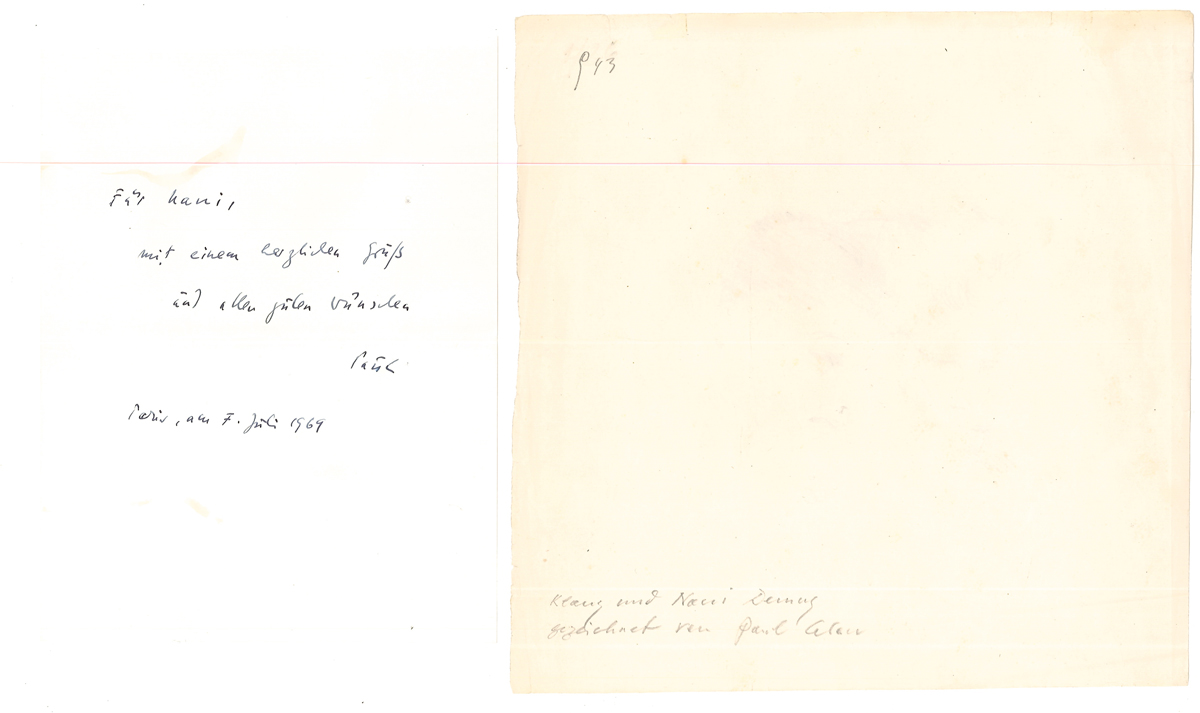 Für Nani,
mit einem herzlichen Gruß
und allen guten Wünschen
Paul
Paris, am 7. Juli 1969
43
Klaus und Nani Demus
gezeichnet von Paul Celan